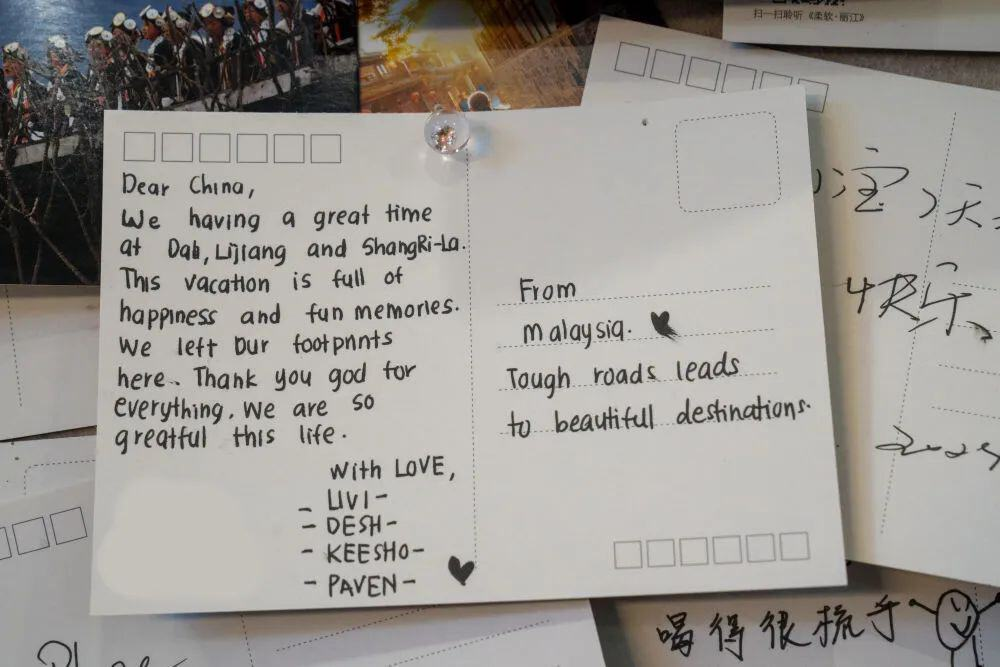 扫一扫聆听《柔软·丽江》
Dear China,
We having a great time
at Dali, Lijiang and ShangRi-La.
This vacation is full of
happiness and fun memories.
We left our footprints
here. Thank you god for
everything. We are so
greatful this life.
With LOVE,
- LIVI -
- DESH -
- KEESHO -
- PAVEN -
From
malaysia.
Tough roads leads
to beautiful destinations.
天
快乐
喝得很